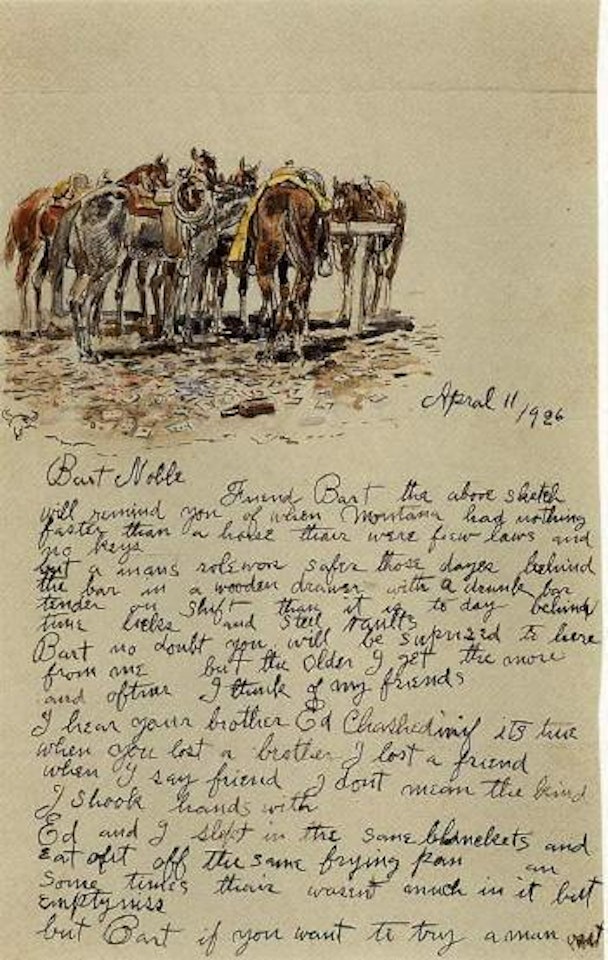 April 11/1926
Bart Noble
Friend Bart the above sketch
will remind you of when Montana had nothing
faster than a horse thair were fiew laws and
no keys
but a mans role was safer those dayes behind
the bar in a wooden drawer with a drunk bar
tender on shift than it is to day behind
time locks and steel vaults
Bart no doubt you will be suprized to here
from me but the older I get the more
and oftner I think of my friends
I hear your brother Ed Chashed in if its true
when you lost a brother I lost a friend
when I say friend I dont mean the kind
I shook hands with
Ed and I slept in the same blanckets and
eat oft off the same frying pan an
Some times thair wasent much in it but
emptyniss
but Bart if you want to try a man